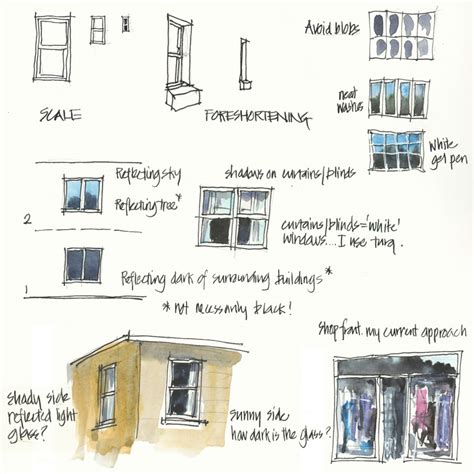 Avoid blobs
neat
washes
White
gel pen
SCALE
FORESHORTENING
Reflecting sky
Reflecting tree*
shadows on curtains/blinds
curtains/blinds='white'
windows...I use turq.
2
Reflecting dark of surrounding buildings*
1
*not necessarily black!
Shopfront. my current approach
shady side
reflected light
glass?
sunny side
how dark is the glass?